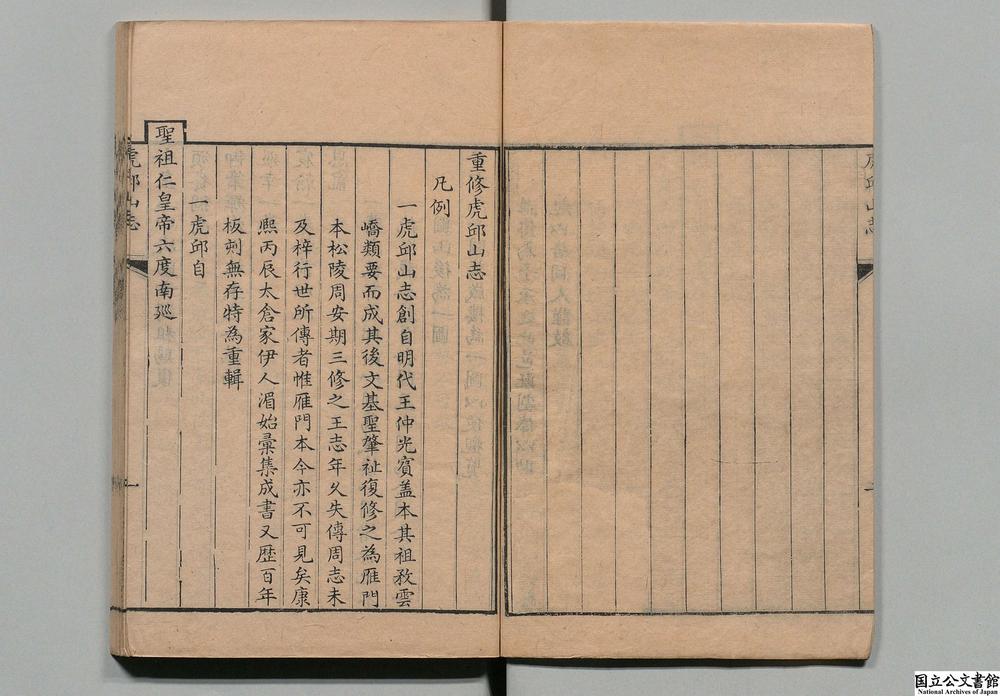 重修虎邱山志
凡例
一虎邱山志創自明代王仲光賓盖本其祖敎雲
嶠類要而成其後文基聖肇祉復修之為雁門
本松陵周安期三修之王志年久失傳周志未
及梓行世所傳者惟雁門本今亦不可見矣康
熙丙辰太倉家伊人湄始彙集成書又歴百年
板刻無存特為重輯
一虎邱自
聖祖仁皇帝六度南廵
虎邱山志
一
虎邱山志
国立公文書館
National Archives of Japan